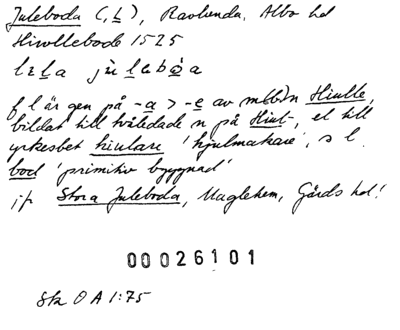 Juleboda (, L), Ravlunda, Albo hd
Hiullebode 1525
f l är gen på -a > -e av mbbn Hiulle,
bildat till tvåledade n på Hiul-, el till
yrkesbet hiulare 'hjulmakare', s l
bod 'primitiv byggnad'
jfr Stora Juleboda, Maglehem, Gärds hd!
00026101
Sk O A 1:75